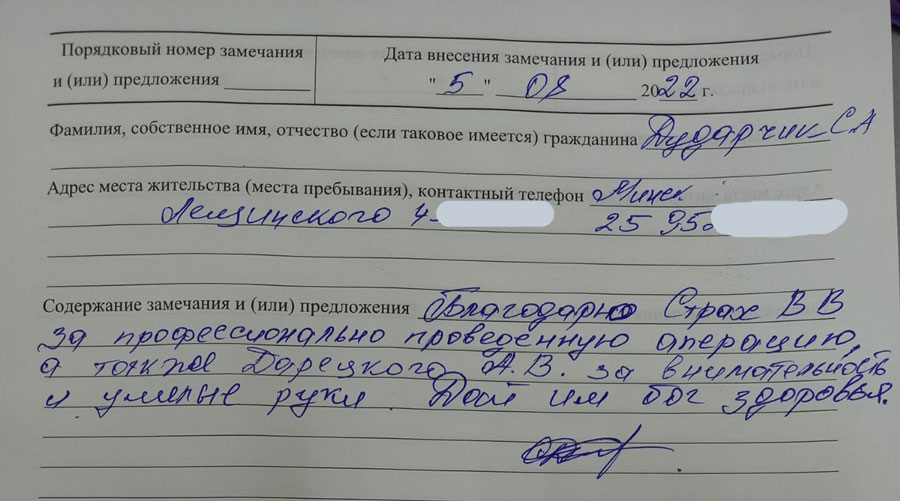 Порядковый номер замечания
и (или) предложения
Дата внесения замечания и (или) предложения
"5" 08 2022 г.
Фамилия, собственное имя, отчество (если таковое имеется) гражданина Дударчик С А
Адрес места жительства (места пребывания), контактный телефон Минск
Лещинского 4- 25 95
Содержание замечания и (или) предложения Благодарю Страх В В
за профессионально проведенную аперацию,
а также Дарецкого А.В. за внимательность
и умелые руки. Дай им бог здоровья.